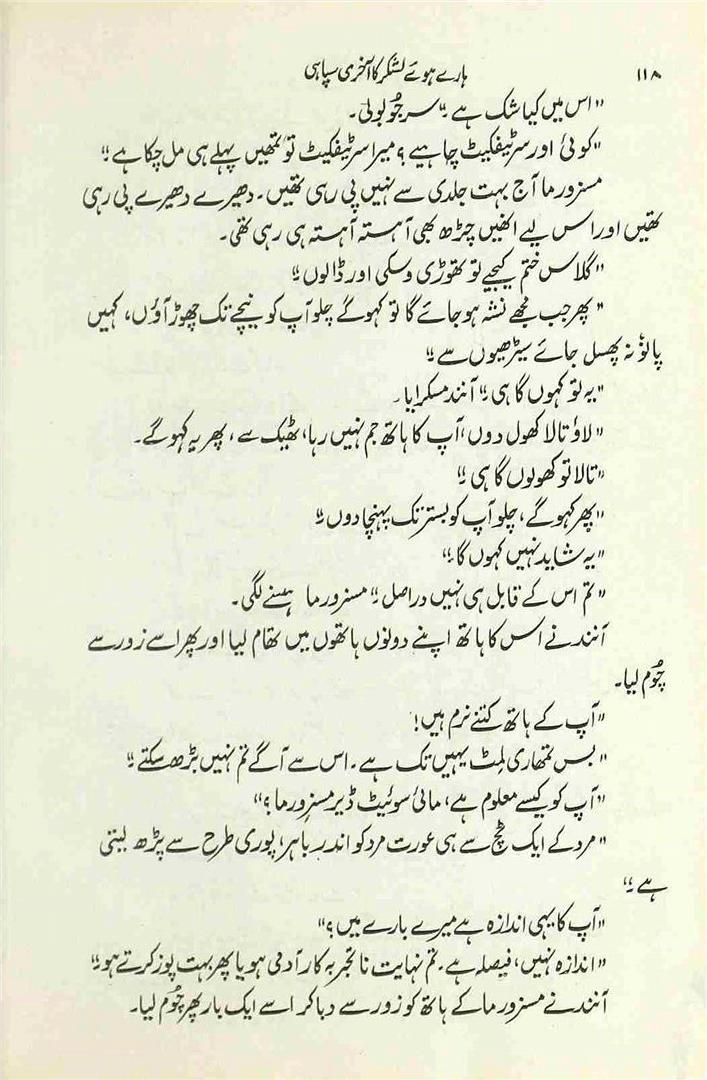 ۱۱۸ ہارے ہوئے لشکر کا آخری سپاہی
"اس میں کیا شک ہے۔" سر جُو بولی۔
"کوئی اور سرٹیفکیٹ چاہیے؟ میرا سرٹیفکیٹ تو تمھیں پہلے ہی مل چکا ہے۔"
مسز ورما آج بہت جلدی سے نہیں پی رہی تھیں۔ دھیرے دھیرے پی رہی
تھیں اور اس لیے انھیں چڑھ بھی آہستہ آہستہ ہی رہی تھی۔
"گلاس ختم کیجیے تو تھوڑی وسکی اور ڈالوں۔"
"پھر جب مجھے نشہ ہو جائے گا تو کہو گے چلو آپ کو نیچے تک چھوڑ آؤں، کہیں
پانؤ نہ پھسل جائے سیڑھیوں سے۔"
"یہ تو کہوں گا ہی۔" آنند مسکرایا۔
"لاؤ تالا کھول دوں، آپ کا ہاتھ جم نہیں رہا، ٹھیک سے، پھر یہ کہو گے۔
"تالا تو کھولوں گا ہی۔"
"پھر کہو گے، چلو آپ کو بستر تک پہنچا دوں۔"
"یہ شاید نہیں کہوں گا۔"
"تم اس کے قابل ہی نہیں دراصل۔" مسز ورما ہنسنے لگی۔
آنند نے اس کا ہاتھ اپنے دونوں ہاتھوں میں تھام لیا اور پھر اسے زور سے
چُوم لیا۔
"آپ کے ہاتھ کتنے نرم ہیں!
"بس تمھاری لِمٹ یہیں تک ہے۔ اس سے آگے تم نہیں بڑھ سکتے۔"
"آپ کو کیسے معلوم ہے، مائی سوئیٹ ڈیر مسز ورما؟"
"مرد کے ایک ٹچ سے ہی عورت مرد کو اندر باہر، پوری طرح سے پڑھ لیتی
ہے۔"
"آپ کا یہی اندازہ ہے میرے بارے میں؟"
"اندازہ نہیں، فیصلہ ہے۔ تم نہایت ناتجربہ کار آدمی ہو یا پھر بہت پوز کرتے ہو۔"
آنند نے مسز ورما کے ہاتھ کو زور سے دبا کر اسے ایک بار پھر چُوم لیا۔